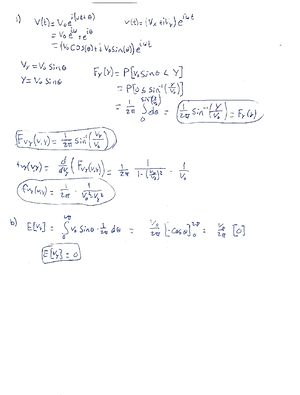 1) V(t) = V₀ e^{i(ωt+θ)}     v(t) = (Vx + iVy) e^{iωt}
= V₀ e^{iωt} e^{iθ}
= (V₀ cos(θ) + i V₀ sin(θ)) e^{iωt}
Vy = V₀ sinθ     Fy(Y) = P[V₀ sinθ ≤ Y]
Y = V₀ sinθ     = P[θ ≤ sin⁻¹(Y/V₀)]
= 1/2π ∫₀^{sin⁻¹(Y/V₀)} dθ = 1/2π sin⁻¹(Y/V₀) = Fy(Y)
F_{Vy}(Vy) = 1/2π sin⁻¹(Vy/V₀)
f_{Vy}(Vy) = d/dVy (F_{Vy}(Vy)) = 1/2π · 1/(1-(Vy/V₀)²) · 1/V₀
f_{Vy}(Vy) = 1/2π · 1/(V₀²-Vy²)
b) E[Vy] = ∫₀^{2π} V₀ sinθ · 1/2π dθ = V₀/2π [-cosθ]₀^{2π} = V₀/2π [0]
E[Vy] = 0